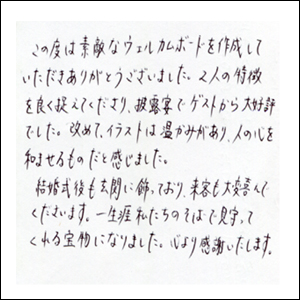 この度は素敵なウェルカムボードを作成して
いただきありがとうございました。2人の特徴
を良く捉えてくださり、披露宴でゲストから大好評
でした。改めて、イラストは温かみがあり、人の心を
和ませるものだと感じました。
結婚式後も玄関に飾っており、来客も大喜んで
くださいます。一生涯私たちのそばで見守って
くれる宝物になりました。心より感謝いたします。